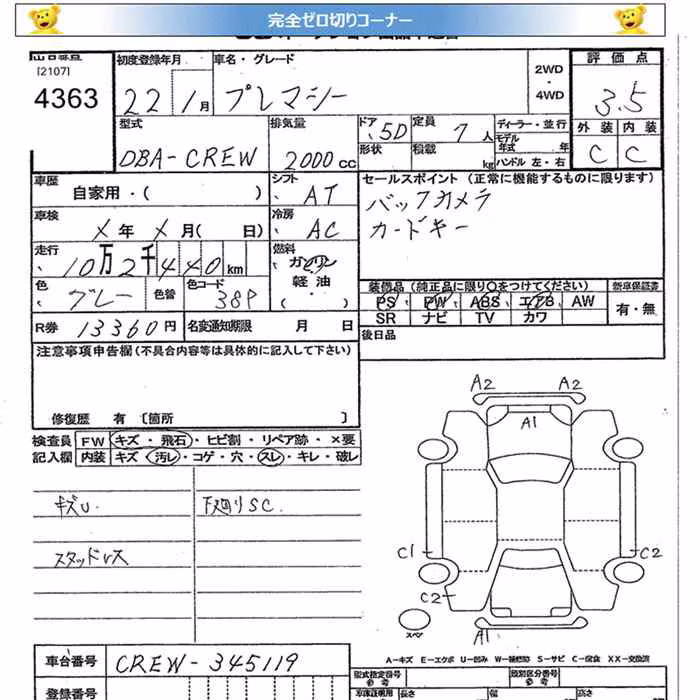 完全ゼロ切りコーナー
[2107]
4363
初度登録年月
22 1月
車名・グレード
プレマシー
2WD
・
4WD
評価点
3.5
外装 内装
C C
型式
DBA-CREW
排気量
2000cc
ドア 5D
形状
定員 7人
積載 kg
ディーラー・並行
モデル年式 年
ハンドル 左・右
車歴
自家用・( )
シフト
AT
セールスポイント (正常に機能するものに限ります)
バックカメラ
カードキー
車検
メ年 メ月( 日)
冷房
AC
走行
10万2千440km
燃料
ガソリン
軽油
・( )
色
グレー
色替
色コード
38P
装備品 (純正品に限り〇をつけてください)
PS PW ABS エアB AW
SR ナビ TV カワ
新車保証書
有・無
R券 13360円
名変通知期限 月 日
後日品
注意事項申告欄 (不具合内容等は具体的に記入して下さい)
修復歴 有 〔箇所 〕
検査員
記入欄
FW キズ・飛石・ヒビ割・リペア跡・×要
内装 キズ・汚レ・コゲ・穴・スレ・キレ・破レ
キズU
下廻りSC.
スタッドレス
A2 A2
A1
C1 C2
C2
スペア
A1
A-キズ E-エクボ U-凹み W-補修跡 S-サビ C-腐食 XX-交換済
車台番号 CREW-345119
登録番号
型式指定番号
参考
類別区分番号
参考
車庫証明用
長さ 幅 高さ